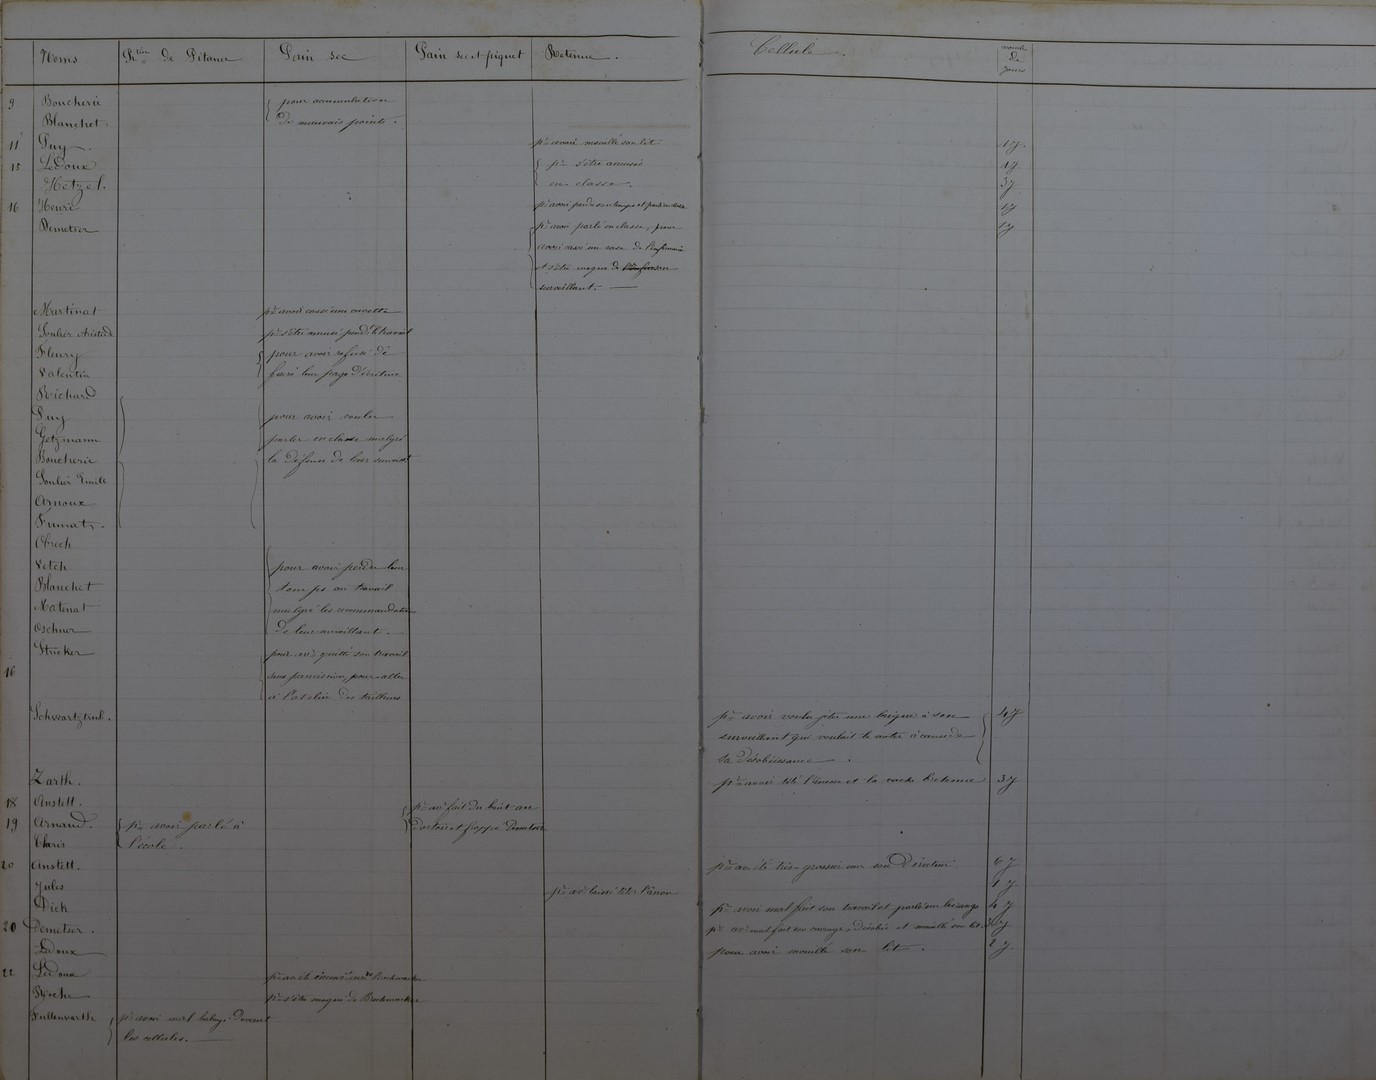 Noms Ron de Pitance Pain sec Pain sec et piquet Retenue. Cellule. de jours
9 Boucherie pour accumulation
Blanchet. de mauvais points.
11 Puy pr avoir mouillé son lit 1 j.
15 Ledoux pr s'être amusé 1 j
Hetzel. en classe. 3 j
16 Henri pr avoir perdu son temps et 1 j
Demetier pr avoir parlé en classe, pour 1 j
avoir un vase de l'infirmerie
et s'être moqué de son
surveillant.
Martinat pr avoir cassé une cuvette
Soulier pr s'être amusé pendt le travail
Fleury pour avoir refusé de
Valentin faire leur page d'écriture
Richard
Puy pour avoir voulu
Getzmann parler en classe malgré
Boucherie la défense de leur surveillt
Soulier Emile
Arnoux
Fumat.
Obrech
Vetch pour avoir perdu leur
Blanchet temps au travail
Matinat malgré les recommandations
Oschner de leur surveillant.
Stricker pour avr quitté son travail
16 sans permission, pour aller
à l'atelier des tailleurs
Schwartztrub. pr avoir voulu jeter une brique à son 4 j
surveillant qui voulait le noter à cause de
sa désobéissance.
Zarth. pr avoir tété l'ânesse et la vache bretonne 3 j
18 Anstett. pr avr fait du bruit au
19 Arnaud. pr avoir parlé à dortoir et frappé Demetier
Claris l'école.
20 Anstett. pr avr été très-grossier avec son Directeur 6 j
Jules pr avr laissé téter l'ânon 1 j
Dick pr avoir mal fait son travail et parlé en les rangs 4 j
20 Demetier. pr avr mal fait son ouvrage, désobéi et mouillé son lit. j
Ledoux pour avoir mouillé son lit. 2 j
22 Ledoux pr avr été
Roche pr s'être moqué de
Fullenwarth pr avoir mal balayé devant
les cellules.